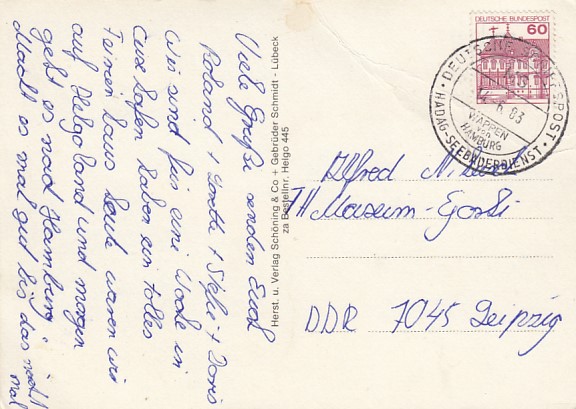 Viele Grüße senden Euch
Roland + Dorth + Sylvi + Doris
Wir sind für eine Woche in
Cuxhafen haben ein tolles
Ferien haus heute waren wir
auf Helgoland und morgen
geht es nach Hamburg.
Macht es mal gut bis das nächste
mal
Herst. u. Verlag Schöning & Co + Gebrüder Schmidt - Lübeck
za Bestellnr. Helgo 445
DEUTSCHE BUNDESPOST 60
DEUTSCHE SCHIFFSPOST
6.83
WAPPEN
von
HAMBURG
HADAG-SEEBÄDERDIENST
Alfred
Maxim-Gorki
DDR 7045 Leipzig